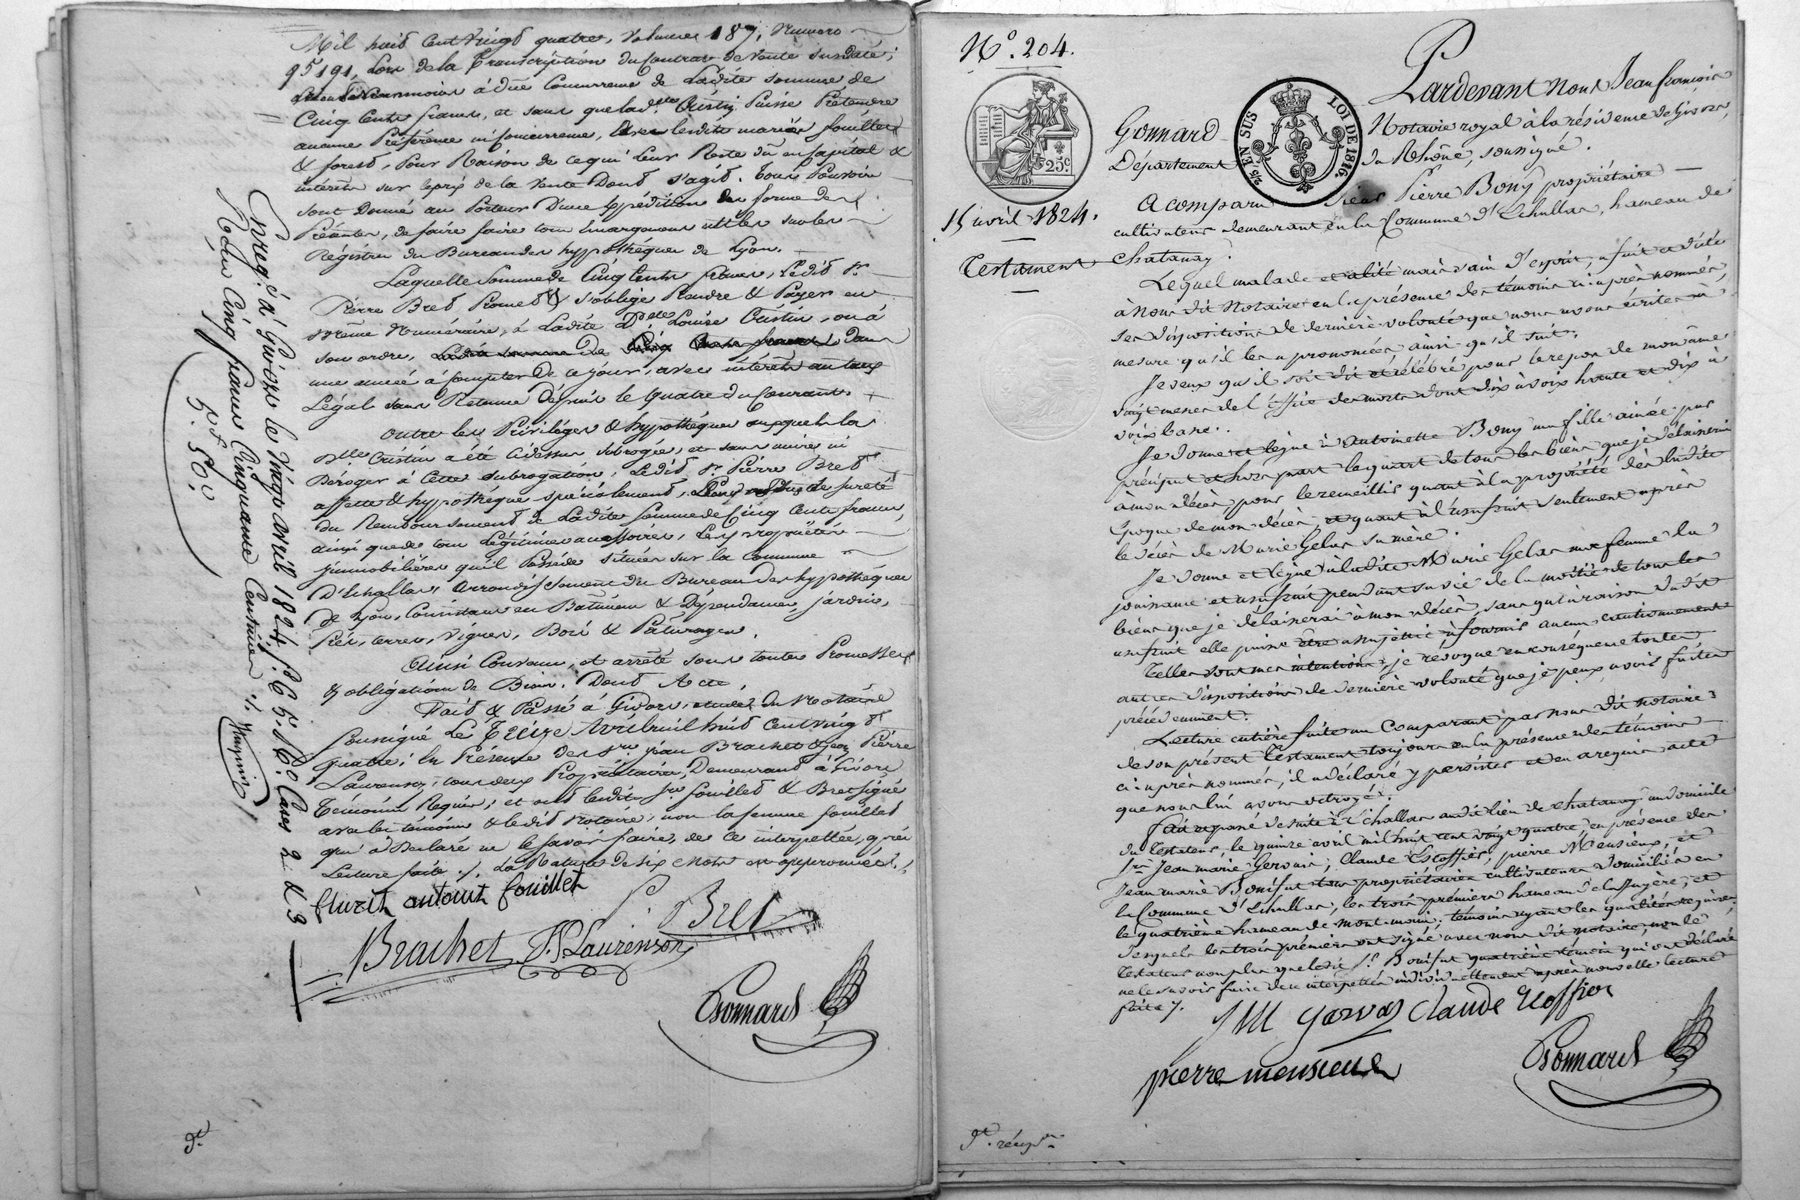 Mil huit Cent Vingt quatre, Volume 187, Numero
95191, Lors de la Transcription du Contrat de Vente susdaté;
à dûe Concurrence de Ladite somme de
Cinq Cents francs, et sans que lad.te Cristin Puisse Prétendre
aucune Préférence ni Concurrence, avec lesdits mariés fouillet
& forest, Pour Raison de ce qui Leur Reste dû en Capital &
intérêts sur le prix de la Vente Dont s'agit. tous Pouvoirs
sont Donné au Porteur D'une Expédition en forme des
Présentes, de faire faire tous Emargemens utiles sur les
Régistres du Bureau des hypothéques de Lyon.
Laquelle Somme de Cinq Cents francs, Ledit S.r
Pierre Bret Promet & s'oblige Rendre & Payer en
même Numéraire, à Ladite D.elle Louise Cristin, ou à
son ordre, dans
une année à Compter De ce jour, avec intérêts au taux
Légal sans Retenue Depuis le quatre du Courant.
Outre les Priviléges & hypothéques auxquels la
D.lle Cristin a été Cidessus subrogée, et sans nuire ni
Déroger à Cette subrogation, Ledit S.r Pierre Bret
affecte & hypothéque spécialement, Pour sureté
du Remboursement de Ladite Somme de Cinq Cents francs,
ainsi que de tous Légitimes accessoires, Les propriétés
jmmobilières qu'il Posséde situées sur la Commune
D'Echallas, arrondissement du Bureau des hypothéques
de Lyon, Consistant en Batimens & Dépendances, jardins,
Prés, terres, Vignes, Bois & Pâturages.
Ainsi Convenu, et arrêté sous toutes Promesses
& obligations de Biens. Dont Acte.
Fait & Passé à Givors étude du Notaire
Soussigné Le Treize Avril mil huit Cent Vingt
quatre; En Présence des S.rs jean Brachet & jean Pierre
Laurenson, tous deux Propriétaires, Demeurant à Givors
Témoins Requis; et ont lesdits S.rs fouillet & Bret signé
avec les témoins & ledit Notaire, non la femme fouillet
qui a Déclaré ne le savoir faire, de ce interpellée, après
Lecture faite ./. La Rature de six mots est approuvée ./.
antoine fouillet
P. Bret
Brachet J P Laurenson
Gonnard
Enreg.é à Givors le Vingt avril 1824. f.o 65. R.o Cases 2 & 3
Reçu Cinq francs Cinquante Centimes ./.
5.f 50.c
N.o 204.
15 avril 1824.
Testament
25.c
25.c EN SUS
LOI DE 1816.
Pardevant Nous Jean françois
Gonnard Notaire royal à la résidence de Givors,
Département du Rhône, soussigné.
A comparu Sieur Pierre Bony propriétaire
cultivateur demeurant en la Commune d'Echallas, hameau de
Chatanay.
Lequel malade et alité mais sain d'esprit, a fait et dicté
à Nous dit Notaire en la présence des témoins ci-après nommés,
ses dispositions de dernière volonté que nous avons écrites à
mesure qu'il les a prononcées ainsi qu'il suit.
Je veux qu'il soit dit et célébré pour le repos de mon âme
vingt messes de l'office des morts dont dix à voix haute et dix à
voix basse.
Je donne et lègue à Antoinette Bony ma fille ainée par
préciput et hors part le quart de tous les biens que je délaisserai
à mon décès, pour le recueillir quant à la propriété dès ladite
époque de mon décès, et quant à l'usufruit seulement après
le décès de Marie Gelas sa mère.
Je donne et lègue à ladite Marie Gelas ma femme la
jouissance et usufruit pendant sa vie de la moitié de tous les
biens que je délaisserai à mon décès, sans qu'à raison dudit
usufruit elle puisse être assujettie à fournir aucun cautionnement.
Telles sont mes intentions; je révoque en conséquence toutes
autres dispositions de dernière volonté que je peux avoir faites
précédemment.
Lecture entière faite au Comparant par nous dit notaire
de son présent Testament toujours en la présence des témoins
ci-après nommés, il a déclaré y persister et en a requis acte
que nous lui avons octroyé.
Fait et passé de suite à Echallas audit lieu de Chatanay au domicile
du testateur, le quinze avril mil huit cent vingt quatre, en présence des
S.rs Jean marie Gervais, Claude Escoffier, pierre Mensieux, et
Jean marie Bonifat tous propriétaires cultivateurs domiciliés en
la Commune d'Echallas, les trois premiers hameau de la Fuyère, et
le quatrième hameau de témoins ayant les qualités requises.
Desquels les trois premiers ont signé avec nous dit notaire, non le
testateur non plus que ledit S.r Bonifat quatrième témoin qui ont déclaré
ne le savoir faire de ce interpellés individuellement après nouvelle lecture
faite ./.
J M Gervais Claude Escoffier
pierre mensieux
Gonnard